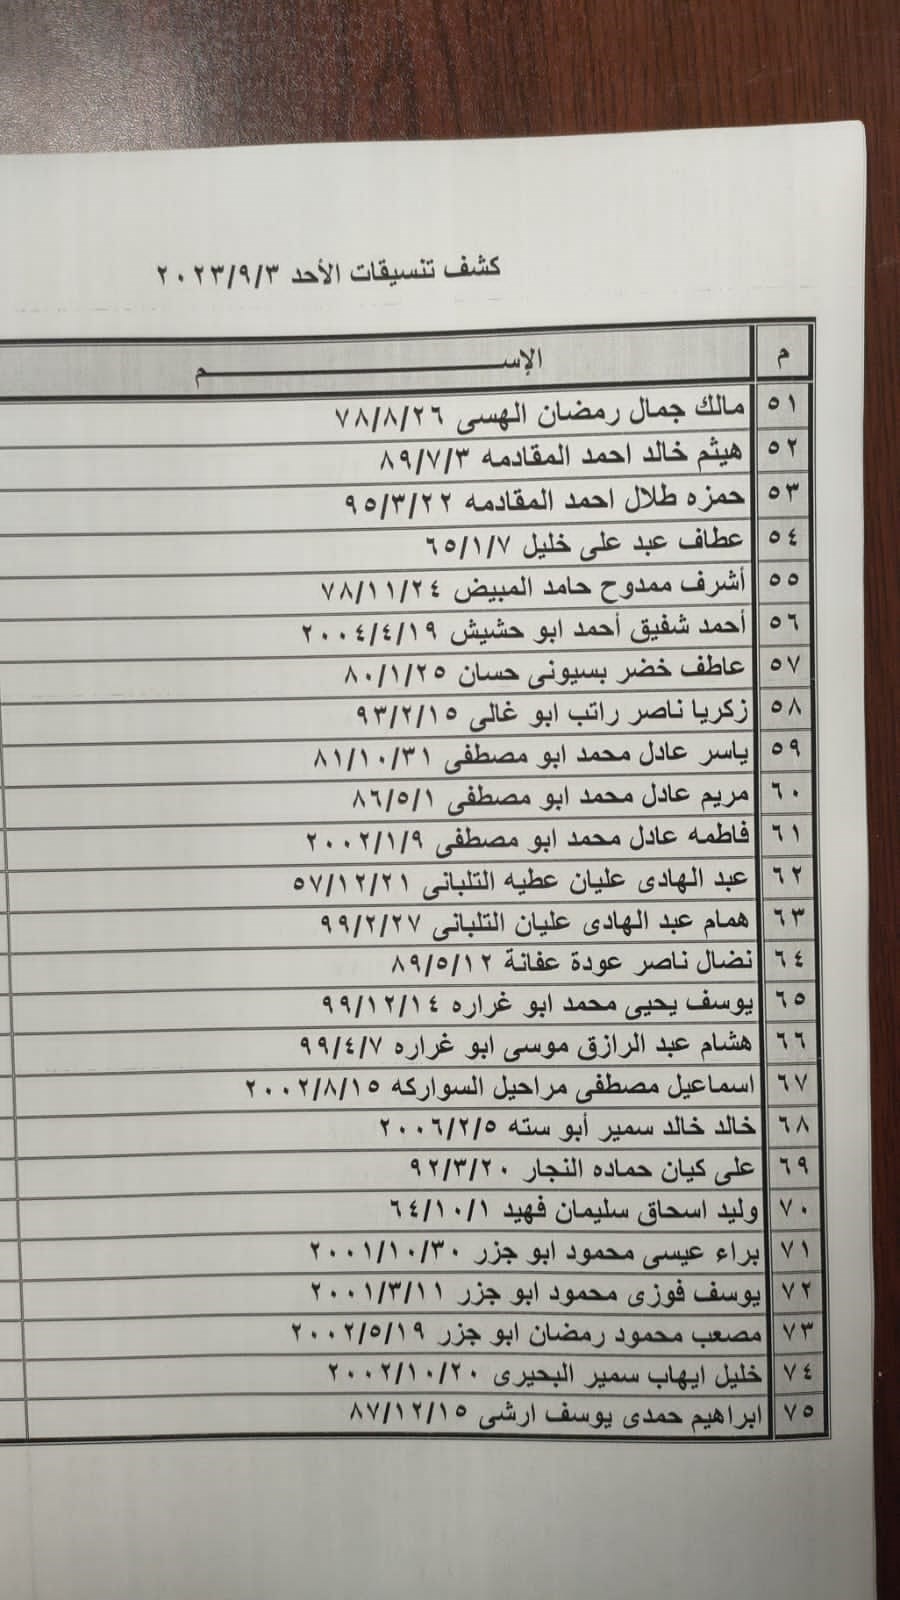 كشف تنسيقات الأحد ٢٠٢٣/٩/٣
م الإســـــــــــــــــــــــــم
٥١ مالك جمال رمضان الهسى ٧٨/٨/٢٦
٥٢ هيثم خالد احمد المقادمه ٨٩/٧/٣
٥٣ حمزه طلال احمد المقادمه ٩٥/٣/٢٢
٥٤ عطاف عبد على خليل ٦٥/١/٧
٥٥ أشرف ممدوح حامد المبيض ٧٨/١١/٢٤
٥٦ أحمد شفيق أحمد ابو حشيش ٢٠٠٤/٤/١٩
٥٧ عاطف خضر بسيونى حسان ٨٠/١/٢٥
٥٨ زكريا ناصر راتب ابو غالى ٩٣/٢/١٥
٥٩ ياسر عادل محمد ابو مصطفى ٨١/١٠/٣١
٦٠ مريم عادل محمد ابو مصطفى ٨٦/٥/١
٦١ فاطمه عادل محمد ابو مصطفى ٢٠٠٢/١/٩
٦٢ عبد الهادى عليان عطيه التلبانى ٥٧/١٢/٢١
٦٣ همام عبد الهادى عليان التلبانى ٩٩/٢/٢٧
٦٤ نضال ناصر عودة عفانة ٨٩/٥/١٢
٦٥ يوسف يحيى محمد ابو غراره ٩٩/١٢/١٤
٦٦ هشام عبد الرازق موسى ابو غراره ٩٩/٤/٧
٦٧ اسماعيل مصطفى مراحيل السواركه ٢٠٠٢/٨/١٥
٦٨ خالد خالد سمير أبو سته ٢٠٠٦/٢/٥
٦٩ على كيان حماده النجار ٩٢/٣/٢٠
٧٠ وليد اسحاق سليمان فهيد ٦٤/١٠/١
٧١ براء عيسى محمود ابو جزر ٢٠٠١/١٠/٣٠
٧٢ يوسف فوزى محمود ابو جزر ٢٠٠١/٣/١١
٧٣ مصعب محمود رمضان ابو جزر ٢٠٠٢/٥/١٩
٧٤ خليل ايهاب سمير البحيرى ٢٠٠٢/١٠/٢٠
٧٥ ابراهيم حمدى يوسف ارشى ٨٧/١٢/١٥